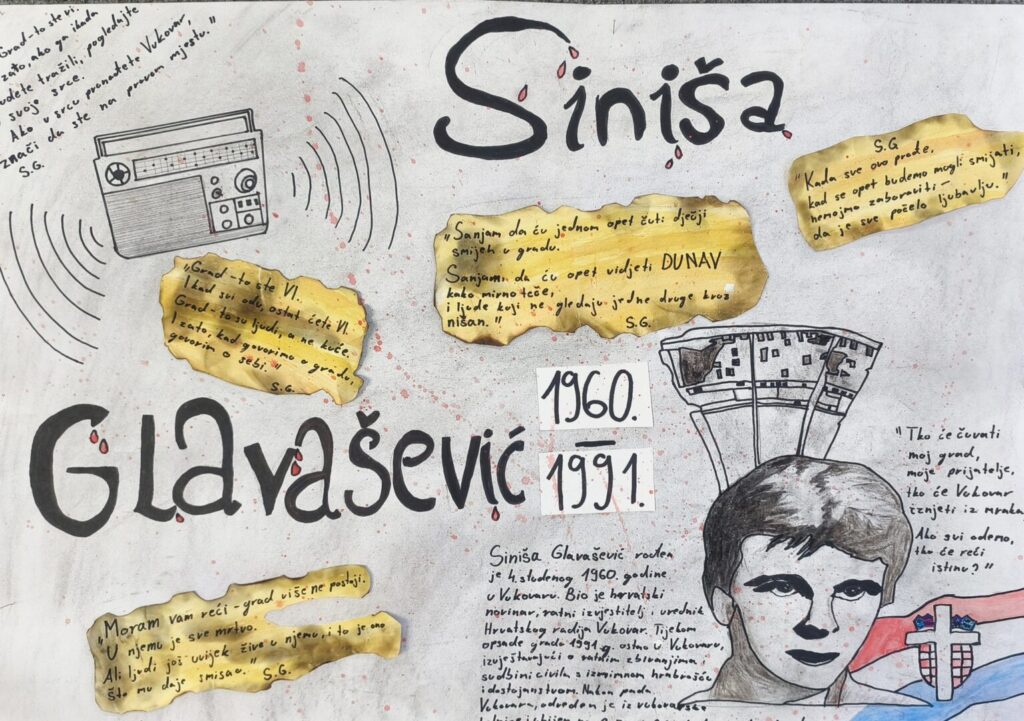 "Grad - to ste vi.
zato, ako ga ikada
budete tražili, pogledajte
u svoje srce.
Ako u srcu pronađete Vukovar,
znači da ste na pravom mjestu."
S.G.
Siniša
S.G
"Kada sve ovo prođe,
kad se opet budemo mogli smijati,
nemojmo zaboraviti -
da je sve počelo ljubavlju."
"Sanjam da ću jednom opet čuti dječji
smijeh u gradu.
Sanjam da ću opet vidjeti DUNAV
kako mirno teče,
i ljude koji ne gledaju jedne druge kroz
nišan."
S.G.
"Grad - to ste VI.
I kad svi odu, ostat ćete VI.
Grad - to su ljudi, a ne kuće.
I zato, kad govorimo o gradu,
govorim o sebi."
S.G.
Glavašević
1960.
–
1991.
"Tko će čuvati
moj grad,
moje prijatelje,
tko će Vukovar
iznjeti iz mraka
Ako svi odemo,
tko će reći
istinu?"
"Moram vam reći - grad više ne postoji.
U njemu je sve mrtvo.
Ali ljudi još uvijek žive u njemu, i to je ono
što mu daje smisao."
S.G.
Siniša Glavašević rođen
je 4. studenog 1960. godine
u Vukovaru. Bio je hrvatski
novinar, ratni izvjestitelj i urednik
Hrvatskog radija Vukovar. Tijekom
opsade grada 1991 g. ostao u Vukovaru,
izvještavajući o ratnim zbivanjima,
sudbini civila s iznimnom hrabrošću
i dostojanstvom. Nakon pada
Vukovara, odveden je iz vukovarske